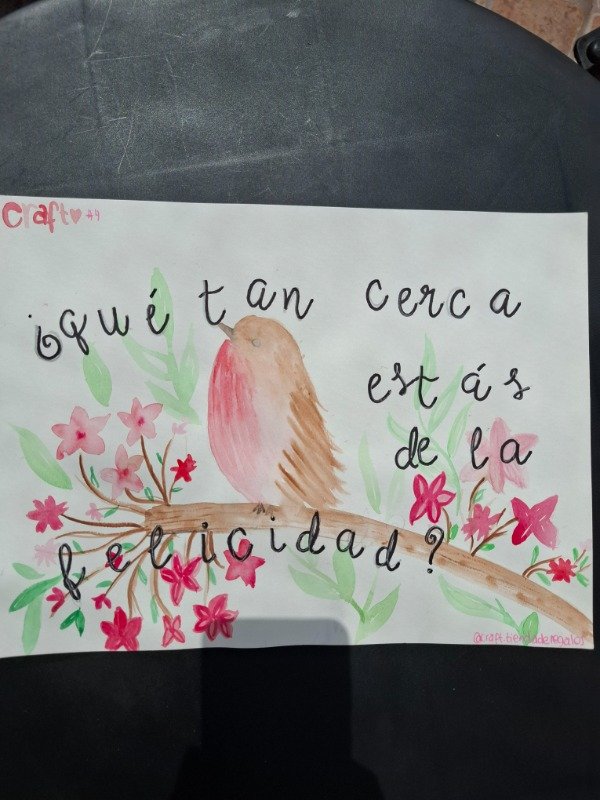 craft♥ #9
¿qué tan cerca
estás
de la
felicidad?
@craft.tiendaderegalos